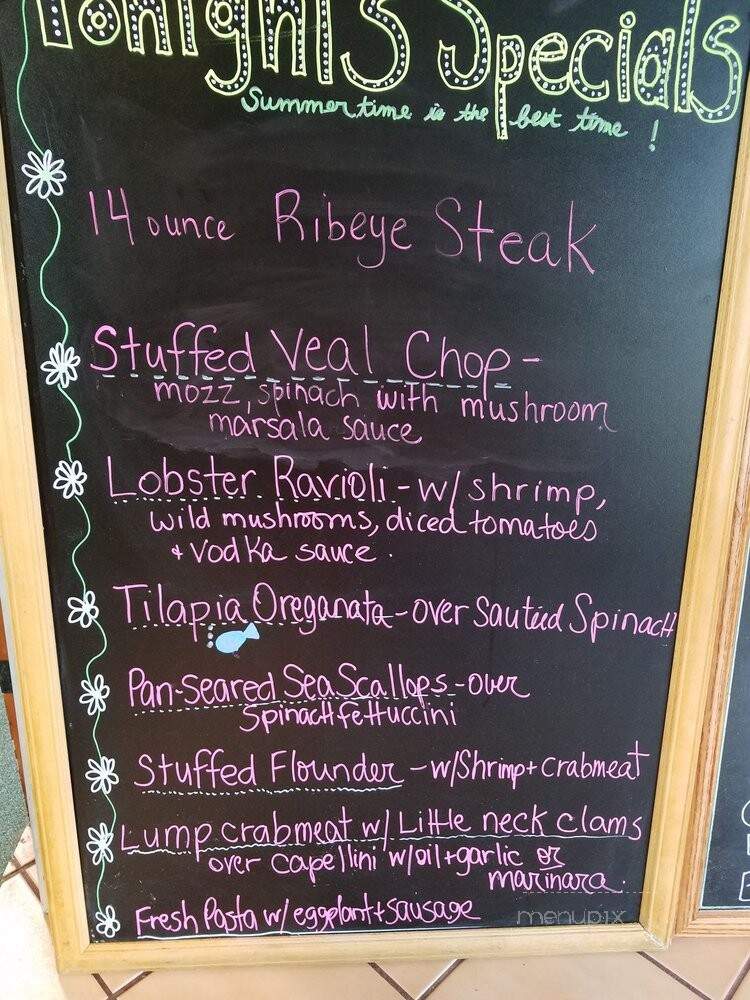 Tonight's Specials
Summer time is the best time !
14 ounce Ribeye Steak
Stuffed Veal Chop -
mozz, spinach with mushroom
marsala sauce
Lobster Ravioli - w/ shrimp,
wild mushrooms, diced tomatoes
+ vodka sauce.
Tilapia Oreganata - over Sautéed Spinach
Pan-Seared Sea Scallops - over
Spinach fettuccini
Stuffed Flounder - w/ Shrimp + crabmeat
Lump crabmeat w/ Little neck clams
over Capellini w/ oil + garlic or
marinara.
Fresh Pasta w/ eggplant + sausage
menupix